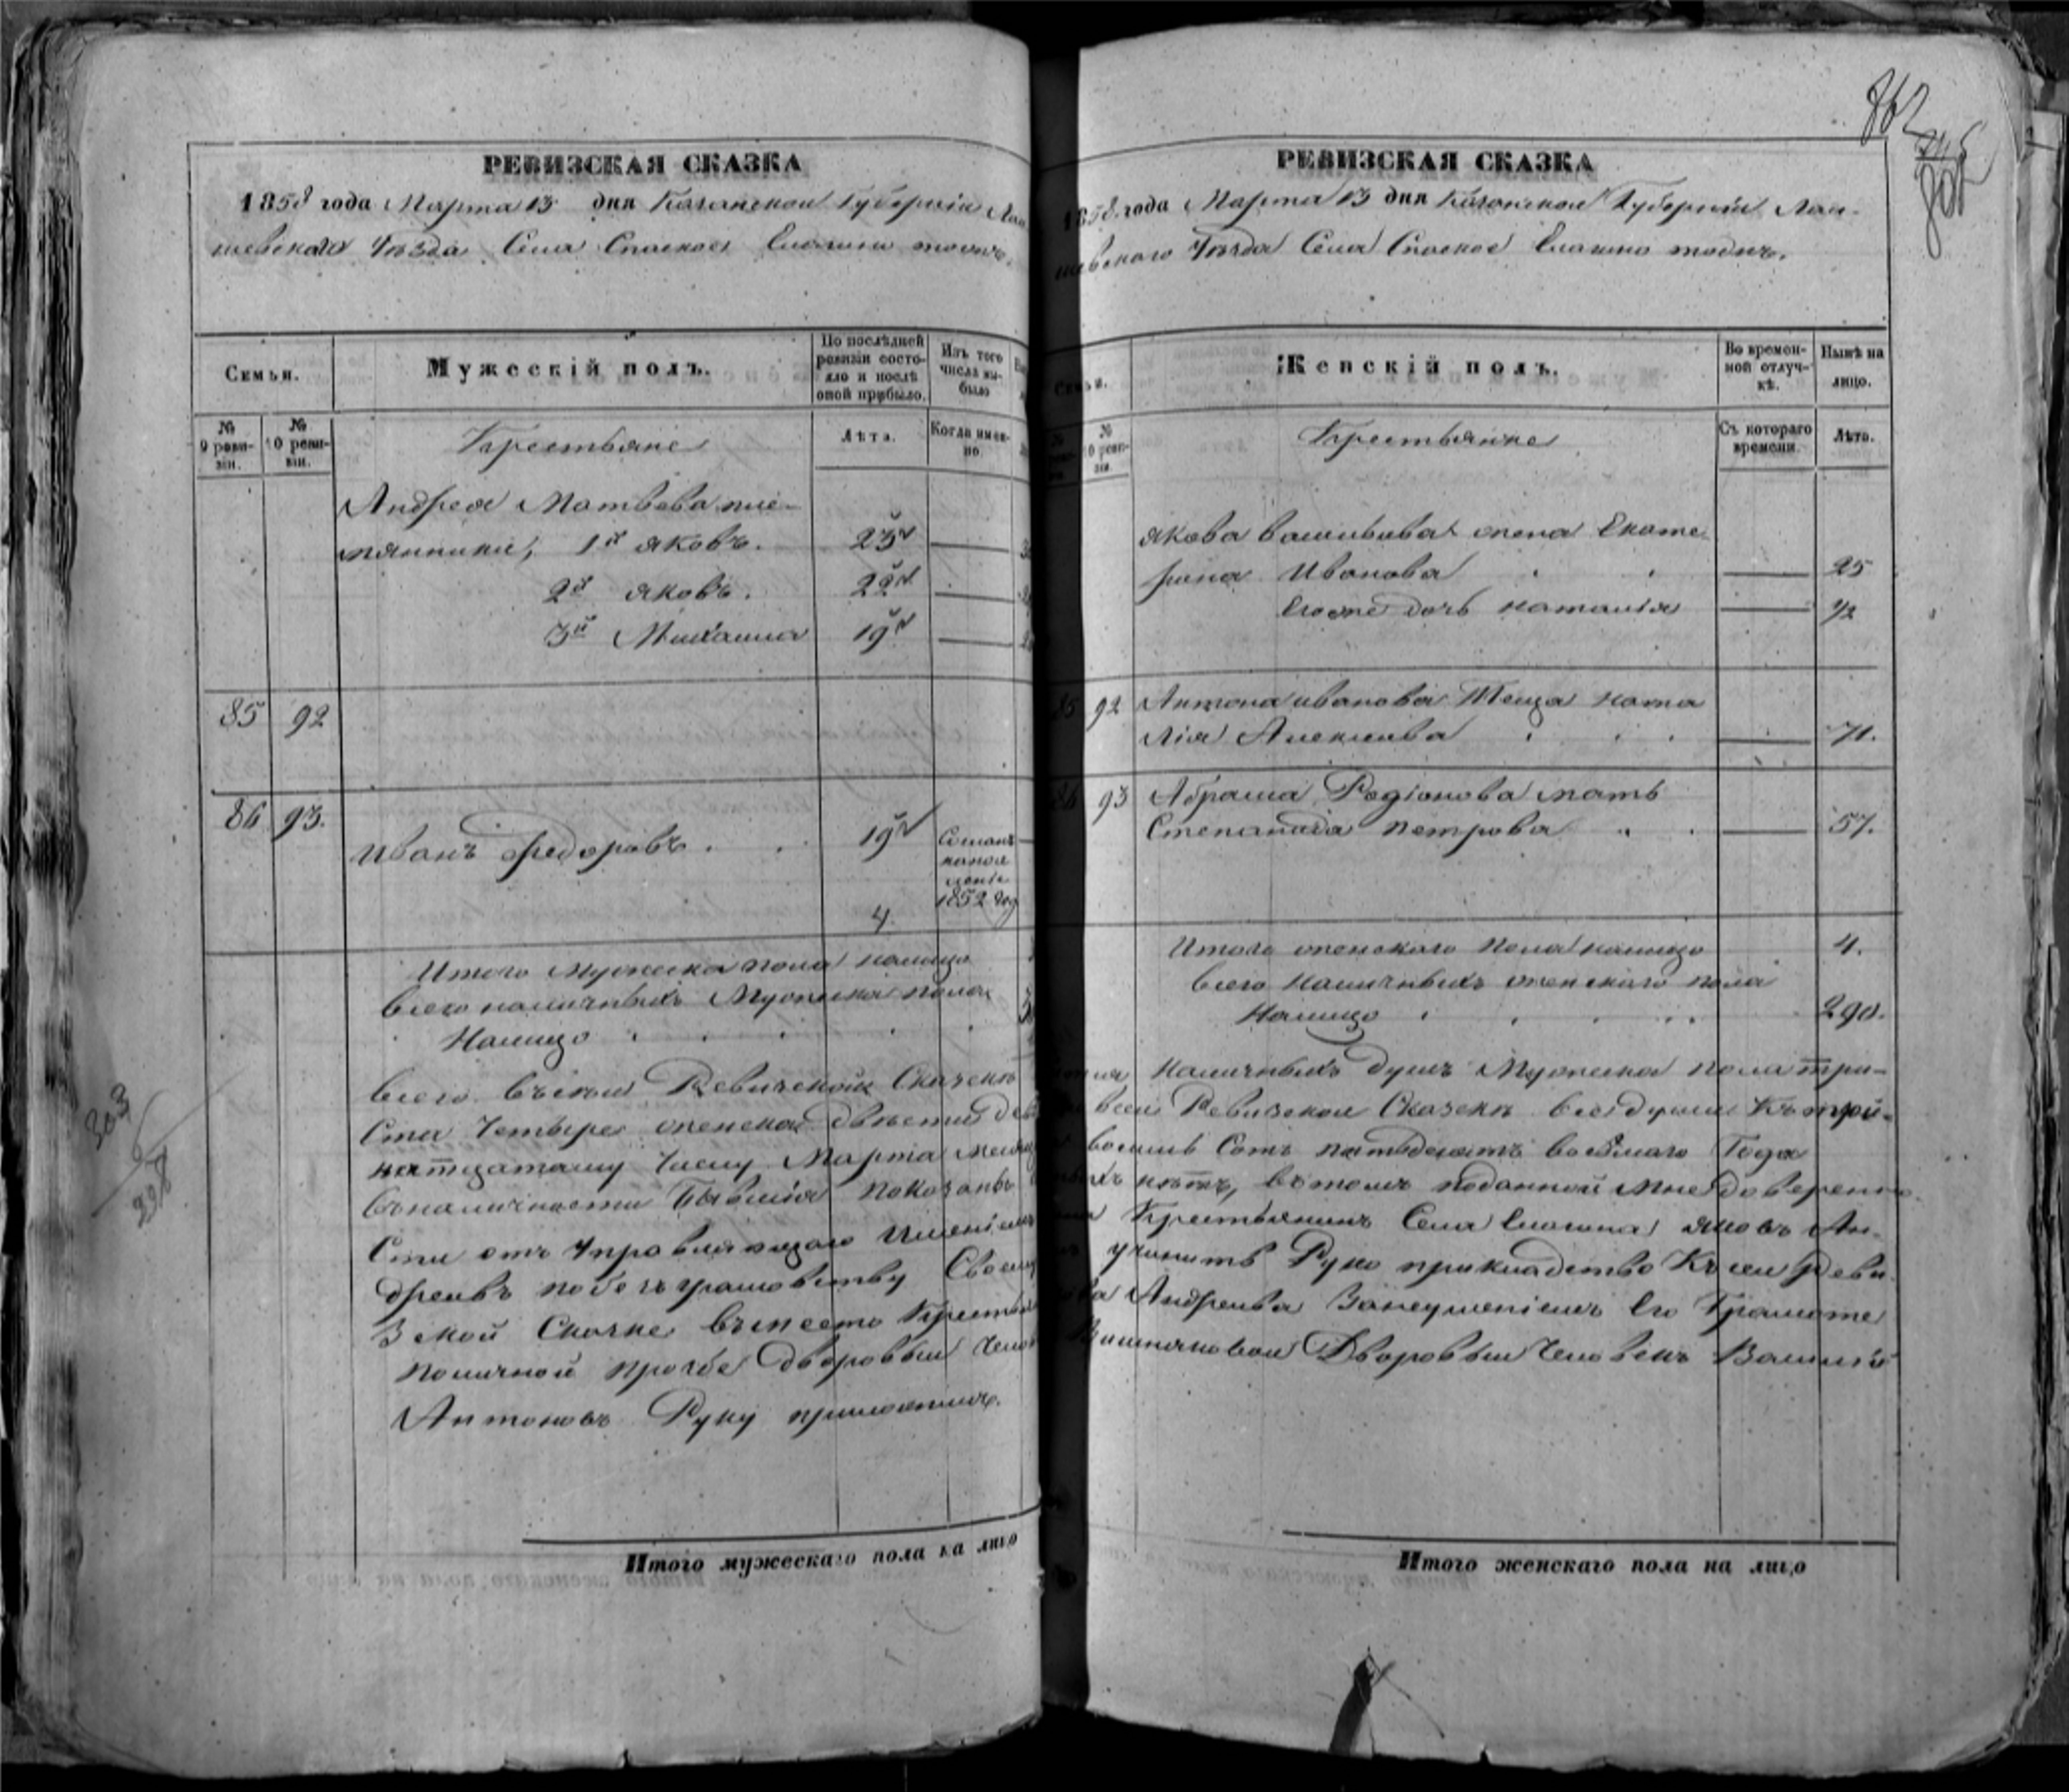 РЕВИЗСКАЯ СКАЗКА
1858 года Марта 13 дня Казанской Губерніи Лаи
шевскаго Уѣзда Села Спаское
Семьи.
Мужескій полъ.
По послѣдней ревизіи состояло и послѣ оной прибыло.
Изъ того числа выбыло
№ 9 ревизіи.
№ 10 ревизіи.
Крестьяне
Лѣта.
Когда именно.
Андрея Матвѣева пле-
мянники, 1й яковъ. 23
2й яковъ. 22
3й Михаила 19
85 92
86 93. Иванъ Федоровъ. 19
1852 год
4.
Итого Мужеска пола налицо
Всего наличныхъ Мужеска пола
Налицо
Всего въ сей Ревизской Сказкѣ
Ста Четыре женска двѣсти де
натцатому Числу Марта
Въ наличности Бывшія показанъ
Сти отъ Управляющаго Имѣніемъ
дреевъ по безъ грамотству Своему
Зской Скаске вместо Крестья
поличной прозбе Дворовый Чело
Антоновъ Руку приложилъ.
Итого мужескаго пола на лицо
303
298
862
РЕВИЗСКАЯ СКАЗКА
1858 года Марта 13 дня Казанской Губерніи Лаи-
шевскаго Уѣзда Села Спаское
Семьи.
Женскій полъ.
Во временной отлучкѣ.
Нынѣ на лицо.
№ 10 ревизіи.
Крестьянке
Съ котораго времени.
Лѣта.
Якова Васильива жена Екате
рина Иванова 25
Егоже дочь наталія 1/2
85 92 Антона иванова Теща ната
лія Алексеива 71.
86 93 Абрама Родіонова мать
Степанида петрова 57.
Итого женскаго Пола налицо 4.
Всего Наличныхъ женскаго пола
Налицо 290.
Наличныхъ душъ Мужеска пола три-
Ревизской Сказкѣ все души Къ три-
восимь Сотъ пятьдесятъ восьмаго Года
нѣтъ, въ томъ поданной мне доверенно
Крестьянинъ Села яковъ Ан-
учинить Руко прикладство Къ сей реви
Андреива Занеуменіемъ Его Грамоте
Дворовый Человекъ Василій
Итого женскаго пола на лицо